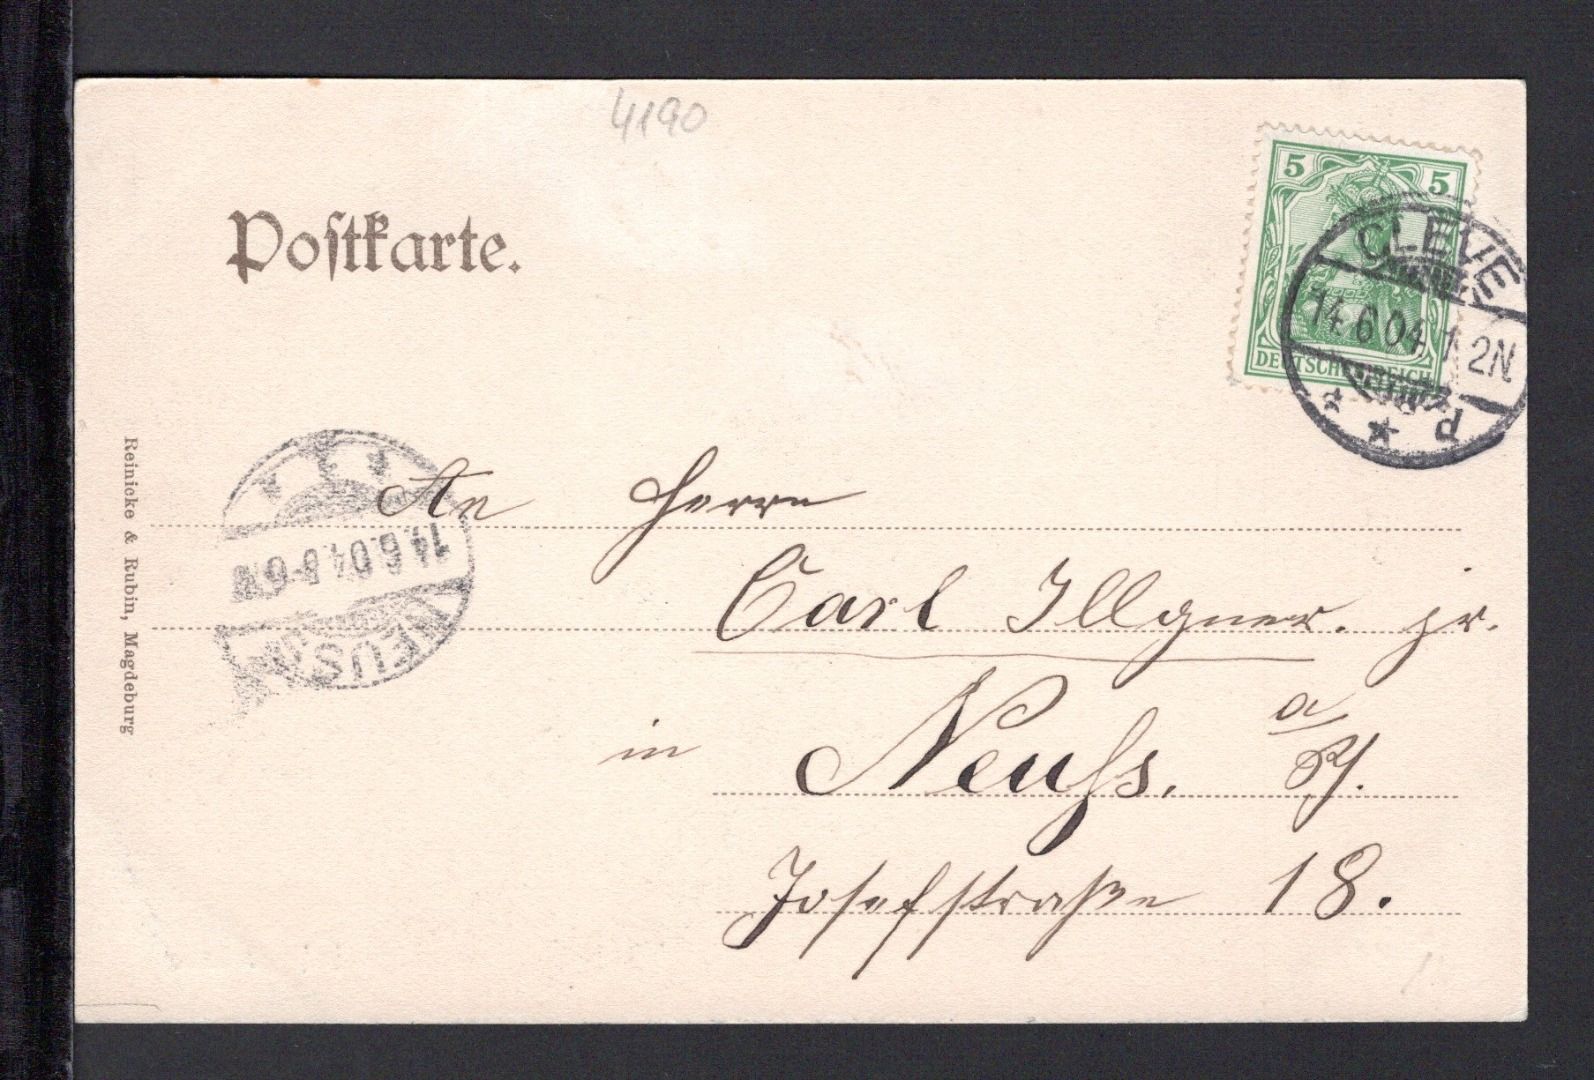 4190
Postkarte.
5 5
DEUTSCHES REICH
CLEVE
14.6.04 1-2N
Reinicke & Rubin, Magdeburg
14.6.04.5-6N
NEUSS
An Herrn
Carl Illgner. jr.
in Neuſs, a/Rh.
Josefstraße 18.